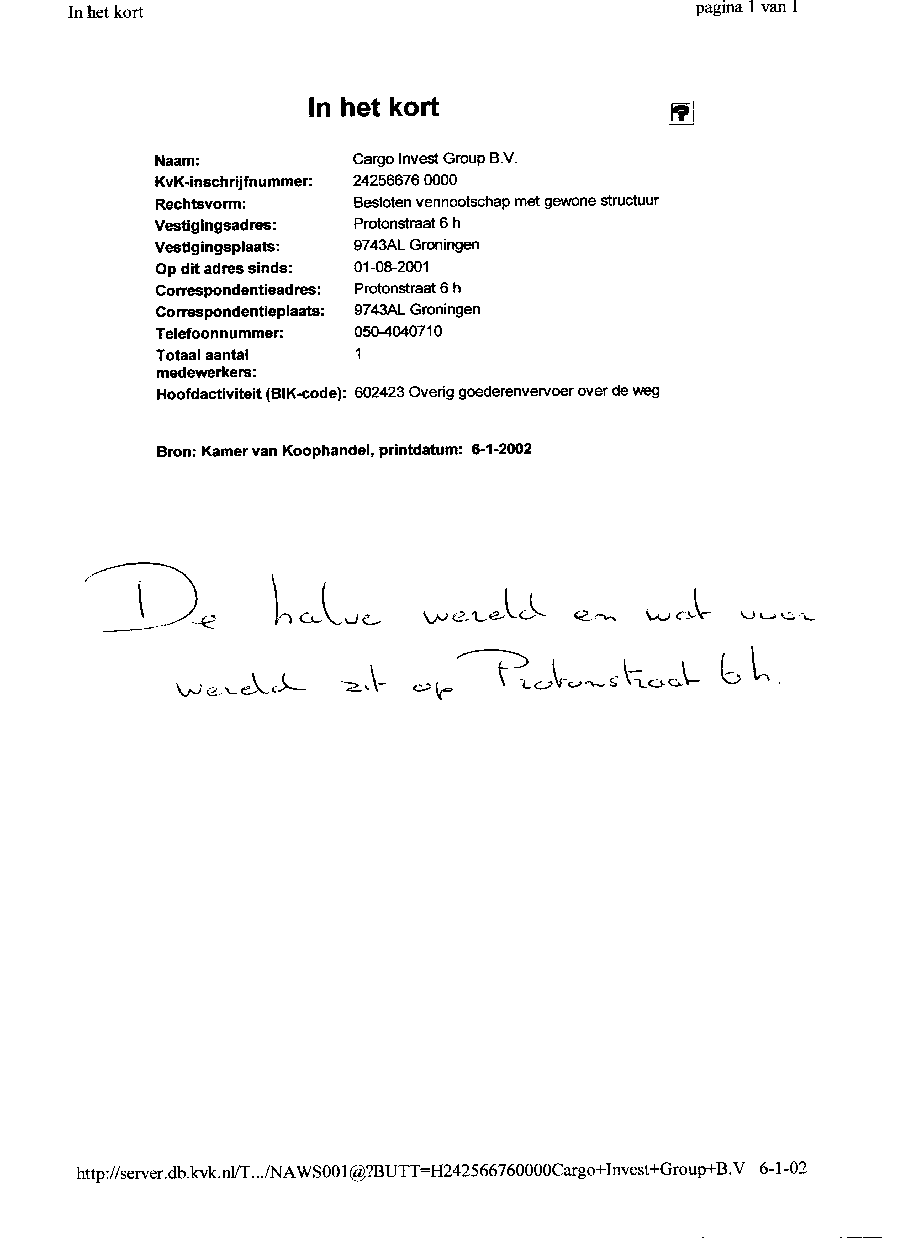 In het kort
pagina 1 van 1
In het kort
Naam: Cargo Invest Group B.V.
KvK-inschrijfnummer: 24256676 0000
Rechtsvorm: Besloten vennootschap met gewone structuur
Vestigingsadres: Protonstraat 6 h
Vestigingsplaats: 9743AL Groningen
Op dit adres sinds: 01-08-2001
Correspondentieadres: Protonstraat 6 h
Correspondentieplaats: 9743AL Groningen
Telefoonnummer: 050-4040710
Totaal aantal 1
medewerkers:
Hoofdactiviteit (BIK-code): 602423 Overig goederenvervoer over de weg
Bron: Kamer van Koophandel, printdatum: 6-1-2002
De halve wereld en wat voor
wereld zit op Protonstraat 6 h.
http://server.db.kvk.nl/T.../NAWS001@?BUTT=H242566760000Cargo+Invest+Group+B.V 6-1-02